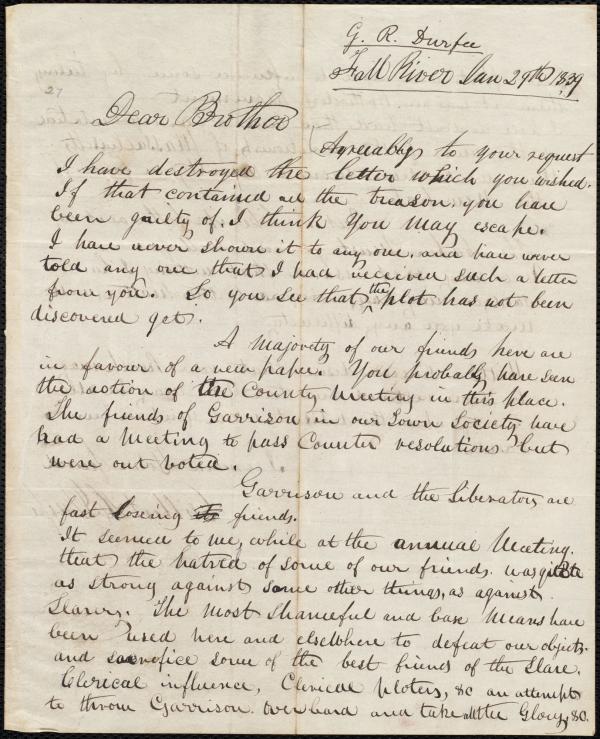 G. R. Durfee
Fall River Jan 29th 1839
27
Dear Brother
Agreeably to your request
I have destroyed the letter which you wished.
If that contained all the treason you have
been guilty of, I think you may escape.
I have never shown it to any one, and have never
told any one that I had received such a letter
from you. So you see that the plot has not been
discovered yet.
A majority of our friends here are
in favour of a new paper. You probably have seen
the action of the County Meeting in this place.
The friends of Garrison in our Town Society have
had a meeting to pass Counter resolutions but
were out voted.
Garrison and the Liberator are
fast loseing the friends.
It seemed to me, while at the annual Meeting.
that the hatred of some of our friends was quite
as strong against some other things, as against
Slavery. The most shameful and base means have
been used here and elsewhere to defeat our objects.
and sacrefice some of the best friends of the Slave.
Clerical influence, Clerical ploters, &c an attempt
to throw Garrison overboard and take all the Glory, &c.